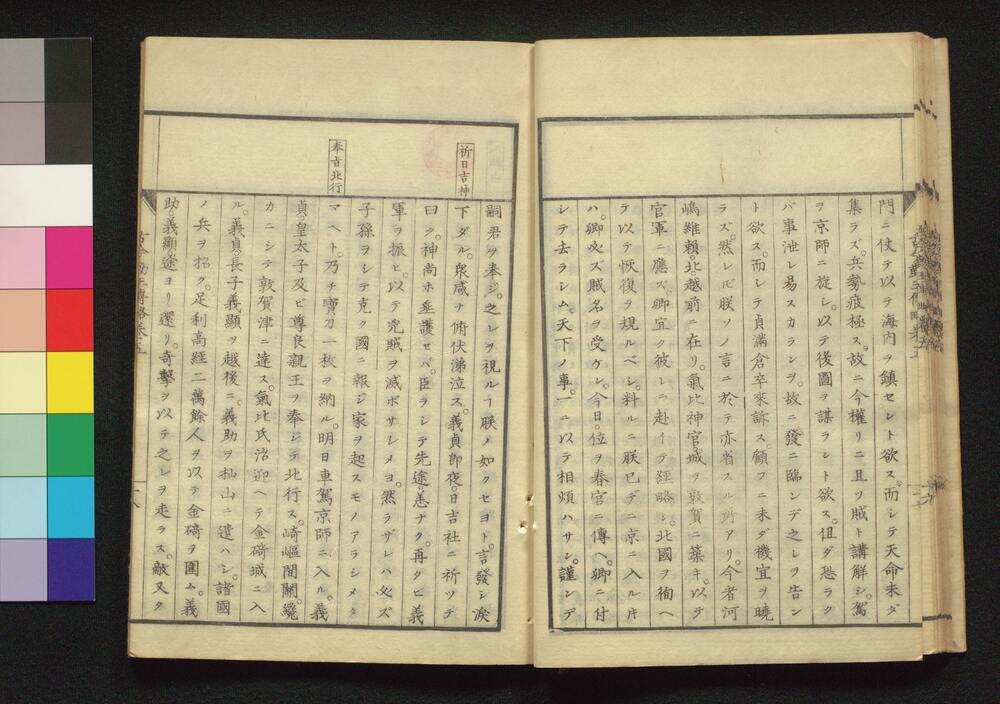 門ニ仗テ以テ海内ヲ鎮セント欲ス。而シテ天命未ダ
集ラズ。兵勢疲極ス。故ニ今權リニ且ツ賊ト講解シ。駕
ヲ京師ニ旋シ。以テ後圖ヲ謀ラント欲ス。但ダ恐ラク
ハ事泄レ易スカランヲ。故ニ發ニ臨ンデ之レヲ告ン
ト欲ス。而シテ貞滿倉卒來訴ス。顧フニ未ダ機宜ヲ曉
ラズ。然レ𪜈朕ソノ言ニ於テ亦省スル所アリ。今者河
嶋維頼。北越前ニ在リ。氣比神官城ヲ敦賀ニ築キ。以テ
官軍ニ應ズ。卿宜ク彼レニ赴イテ經略シ。北國ヲ徇ヘ
テ以テ恢復ヲ規ルベシ。料ルニ朕已デニ京ニ入ル片
ハ。卿必ズ賊名ヲ受ケン。今日。位ヲ春宮ニ傳ヘ。卿ニ付
シテ去ラシム。天下ノ事。一ニ以テ相煩ハサン。謹ンデ
祈日吉神
奉旨北行
嗣君ヲ奉ジ。之レヲ視ルヿ朕ノ如クセヨト。言發シ淚
下ダル。衆咸ナ俯伏涕泣ス。義貞即夜。日吉社ニ祈ツテ
曰ク。神尚ホ垂護セバ。臣ラシテ先途。恙ナク。再タビ義
軍ヲ振ヒ。以テ兇賊ヲ滅ボサシメヨ。然ラザレハ必ズ
子孫ヲシテ克ク國ニ報ジ家ヲ起スモノアラシメタ
マヘト。乃チ寶刀一枚ヲ納ル。明日車駕京師ニ入ル。義
貞。皇太子及ビ尊良親王ヲ奉ジテ北行ス。崎嶇間關。纔
カニシテ敦賀津ニ達ス。氣比氏治迎ヘテ金碕城ニ入
ル。義貞。長子義顯ヲ越後ニ。義助ヲ杣山ニ遣ハシ。諸國
ノ兵ヲ招ク。足利高經二萬餘人ヲ以テ金碕ヲ圍ム。義
助。義顯。途ヨリ還リ。奇擊ヲ以テ之レヲ走ラス。敵又タ